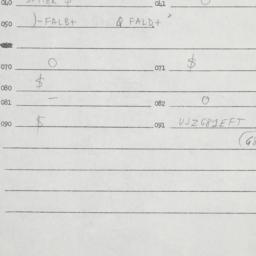 040 041 0
050 )-FALB+ & FALD+
070 0 071 $
080 $
081 - 082 0
090 $ 091 UJZG81EFT
(G